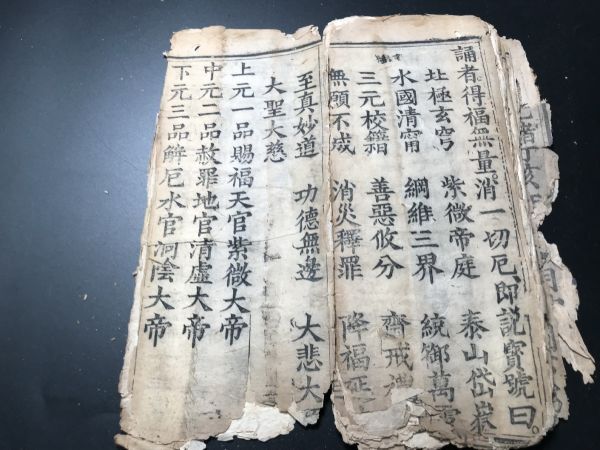 誦者得福無量消一切厄即說寳號曰
北極玄穹 紫微帝庭 泰山岱嶽
水國清甯 綱維三界 統御萬
三元校籍 善惡攸分 齋戒
無願不成 消災釋罪 降福延
至真妙道 功德無邊 大悲大
大聖大慈
上元一品賜福天官紫微大帝
中元二品赦罪地官清虛大帝
下元三品解厄水官洞陰大帝